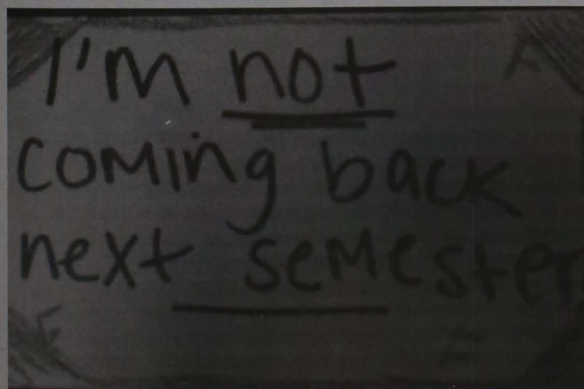 I'm not
coming back
next semester
F
F